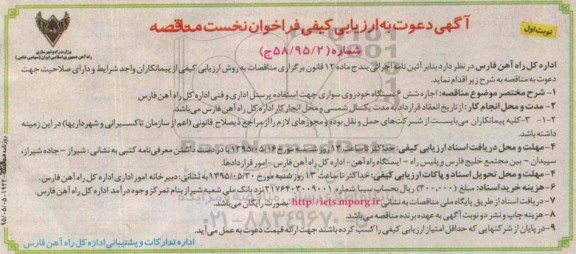 آگهی دعوت به ارزیابی کیفی فراخوان نخست مناقصه
نوبت اول
شماره (۵۸/۹۵/۲ج)
وزارت راه و شهرسازی
راه آهن جمهوری اسلامی ایران (سهامی خاص)
اداره کل راه آهن فارس در نظر دارد بنابر آئین نامه اجرائی بند ج ماده ۱۲ قانون برگزاری مناقصات به روش ارزیابی کیفی از پیمانکاران واجد شرایط و دارای صلاحیت جهت
دعوت به مناقصه به شرح زیر اقدام نماید.
۱- شرح مختصر موضوع مناقصه: اجاره شش ۶ دستگاه خودروی سواری جهت استفاده پرسنل اداری و فنی اداره کل راه آهن فارس
۲- مدت و محل انجام کار: از تاریخ انعقاد قرارداد به مدت یکسال شمسی و محل انجار کار اداره کل راه آهن فارس می‌باشد.
۲-۱- ۳-کلیه پیمانکاران می‌بایست از شرکت‌های حمل و نقل بوده و مجوزهای لازم را از مراجع ذیصلاح قانونی (اعم از سازمان تاکسیرانی و شهرداریها) در این زمینه
داشته باشد.
۴- مهلت و محل دریافت اسناد ارزیابی کیفی: حداکثر تا ساعت ۱۳ روز شنبه مورخ ۱۳۹۵/۰۵/۱۶ با در دست داشتن معرفی‌نامه کتبی به نشانی: شیراز - جاده شیراز،
سپیدان - بین مجتمع خلیج فارس و پلیس راه - ایستگاه راه آهن - اداره کل راه آهن فارس -امور قراردادها.
۶- مهلت و محل تحویل اسناد و پاکات ارزیابی کیفی: حداکثر تا ساعت ۱۳ روز شنبه مورخ ۱۳۹۵/۰۵/۳۰ به نشانی: دبیرخانه امور اداری اداره کل راه آهن فارس.
۶- هزینه خرید اسناد: مبلغ (۳۰۰,۰۰۰) ریال بحساب سیبا شماره ۲۱۷۶۴۰۳۰۰۹۰۰۱ نزد بانک ملی شعبه شیراز بنام تمرکز وجوه درآمد اداره کل راه آهن فارس.
۷- دریافت اسناد از طریق پایگاه ملی مناقصات به نشانی http://iets.mporg.ir بصورت رایگان می‌باشد.
۸- هزینه چاپ و نشر دو نوبت آگهی به عهده برنده مناقصه می‌باشد.
۹- در پایان از شرکتهایی که حداقل امتیاز ارزیابی کیفی را کسب کرده باشند جهت ارائه قیمت دعوت به عمل می‌آید.
اداره تدارکات و پشتیبانی اداره کل راه آهن فارس
۰۲۱-۸۸۳۴۹۶۷۰